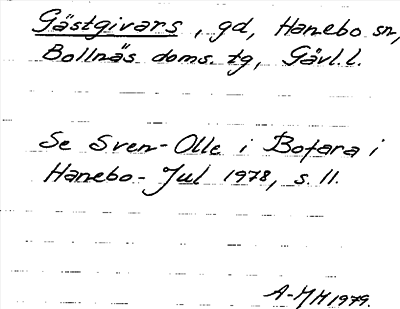 Gästgivars, gd, Hanebo sn,
Bollnäs doms. tg, Gävl.l.
Se Sven-Olle i Bofara i
Hanebo-Jul 1978, s. 11.
A-MH 1979.